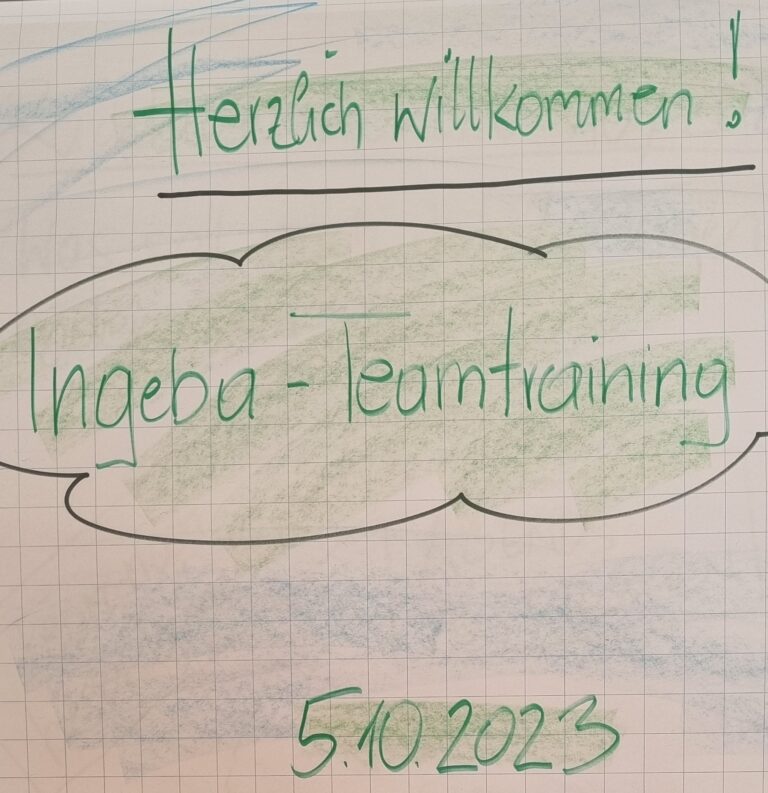 Herzlich willkommen!
Ingeba - Teamtraining
5.10.2023